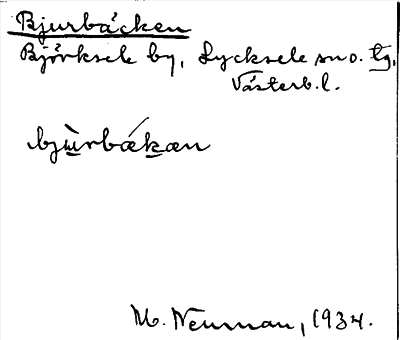 Bjurbäcken
Björksele by, Lycksele sn o. tg,
Västerb. l.
bjùrbäkæn
M. Neuman, 1934.